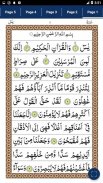 Page 5 Page 4 Page 3 Page 2 Page 1
بِسْمِ اللهِ الرَّحْمٰنِ الرَّحِيمِ
يس وَالْقُرْآنِ الْحَكِيمِ إِنَّكَ
لَمِنَ الْمُرْسَلِينَ عَلَى صِرَاطٍ
مُسْتَقِيمٍ تَنْزِيلَ الْعَزِيزِ الرَّحِيمِ
لِتُنْذِرَ قَوْمًا مَا أُنْذِرَ آبَاؤُهُمْ
فَهُمْ غَافِلُونَ لَقَدْ حَقَّ الْقَوْلُ
عَلَى أَكْثَرِهِمْ فَهُمْ لَا يُؤْمِنُونَ
إِنَّا جَعَلْنَا فِي أَعْنَاقِهِمْ أَغْلَالًا
فَهِيَ إِلَى الْأَذْقَانِ فَهُمْ